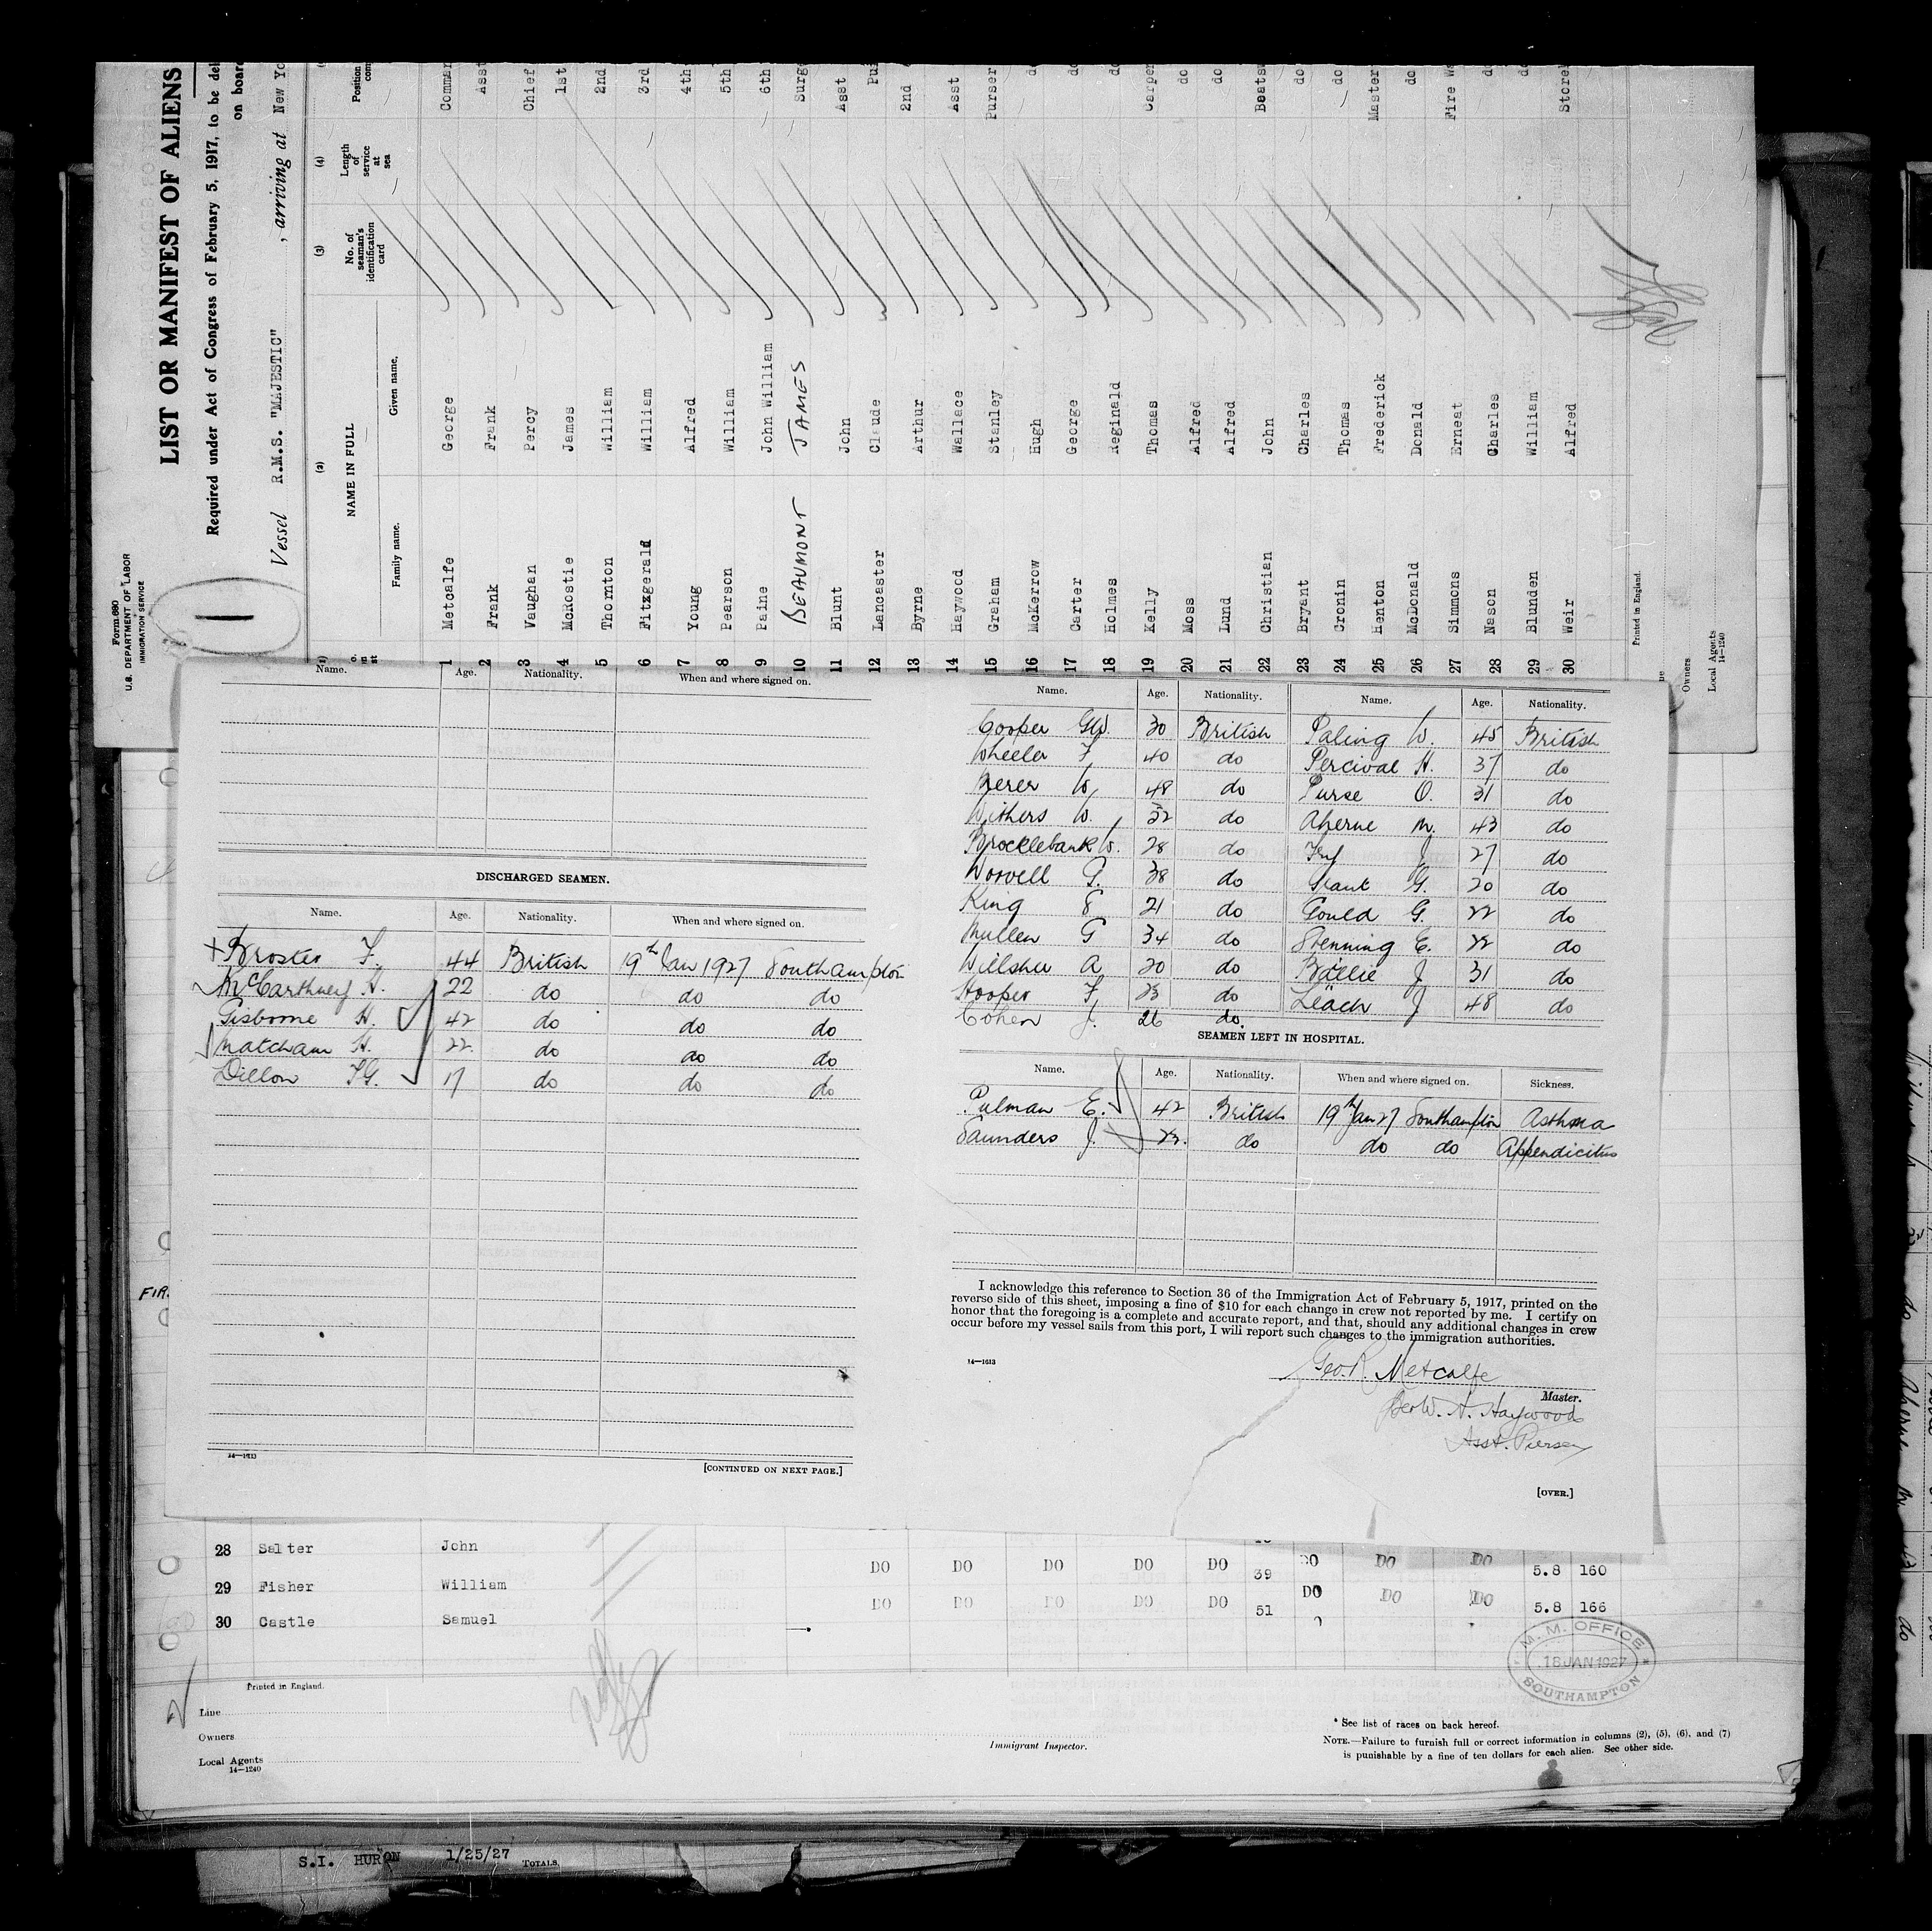 Form 680
U.S. DEPARTMENT OF LABOR
IMMIGRATION SERVICE
LIST OR MANIFEST OF ALIENS
Required under Act of Congress of February 5, 1917, to be del
on board
Vessel R.M.S. "MAJESTIC" , arriving at New Yo
(2) (3) (4)
NAME IN FULL No. of seaman's identification card Length of service at sea Position
Family name. Given name.
1 Metcalfe George Comman
2 Frank Frank Asst
3 Vaughan Percy Chief
4 McRostie James 1st
5 Thornton William 2nd
6 Fitzgerald William 3rd
7 Young Alfred 4th
8 Pearson William 5th
9 Paine John William 6th
10 BEAUMONT JAMES Surge
11 Blunt John Asst
12 Lancaster Claude Pu
13 Byrne Arthur 2nd
14 Haywood Wallace Asst
15 Graham Stanley Purser
16 McKerrow Hugh do
17 Carter George do
18 Holmes Reginald do
19 Kelly Thomas Carpen
20 Moss Alfred do
21 Lund Alfred do
22 Christian John Boatsw
23 Bryant Charles do
24 Cronin Thomas do
25 Henton Frederick Master
26 McDonald Donald do
27 Simmons Ernest Fire
28 Nason Charles do
29 Blunden William do
30 Weir Alfred Storek
Printed in England.
Owners
Local Agents
14—1240
Name. Age. Nationality. When and where signed on.
DISCHARGED SEAMEN.
Name. Age. Nationality. When and where signed on.
Broster F. 44 British 19th Jan 1927 Southampton
McCarthney H. 22 do do do
Gisborne H. 42 do do do
Matcham H. 22 do do do
Dillon F.G. 17 do do do
14—1613
[CONTINUED ON NEXT PAGE.]
Name. Age. Nationality. Name. Age. Nationality.
Cooper GW. 30 British Paling W. 45 British
Wheeler F 40 do Percival H. 37 do
W. 48 do Purse O. 31 do
Withers W. 32 do Aherne M. 43 do
Brocklebank W. 28 do J 27 do
Worvell G. 38 do Grant G. 20 do
King 21 do Gould G. 22 do
Mullen G 34 do Stenning E. 22 do
Willsher A 20 do Baillie J 31 do
Hooper F 23 do Leach J 48 do
Cohen J. 26 do.
SEAMEN LEFT IN HOSPITAL.
Name. Age. Nationality. When and where signed on. Sickness.
Pulman E. 42 British 19th Jan 27 Southampton Asthma
Saunders J. 22. do do do Appendicitis
I acknowledge this reference to Section 36 of the Immigration Act of February 5, 1917, printed on the
reverse side of this sheet, imposing a fine of $10 for each change in crew not reported by me. I certify on
honor that the foregoing is a complete and accurate report, and that, should any additional changes in crew
occur before my vessel sails from this port, I will report such changes to the immigration authorities.
14—1613
Geo. R. Metcalfe
Master.
Geo W. A. Haywood
Asst. Purser
[OVER.]
FIR.
28 Salter John
29 Fisher William DO DO DO DO DO 39 DO DO DO 5.8 160
30 Castle Samuel DO DO DO DO DO 51 DO DO DO 5.8 166
M. M. OFFICE
18 JAN 1927
SOUTHAMPTON
Printed in England.
Line
Owners
Local Agents
14—1240
Immigrant Inspector.
* See list of races on back hereof.
NOTE.—Failure to furnish full or correct information in columns (2), (5), (6), and (7)
is punishable by a fine of ten dollars for each alien. See other side.
S.I. HURON 1/25/27 TOTALS